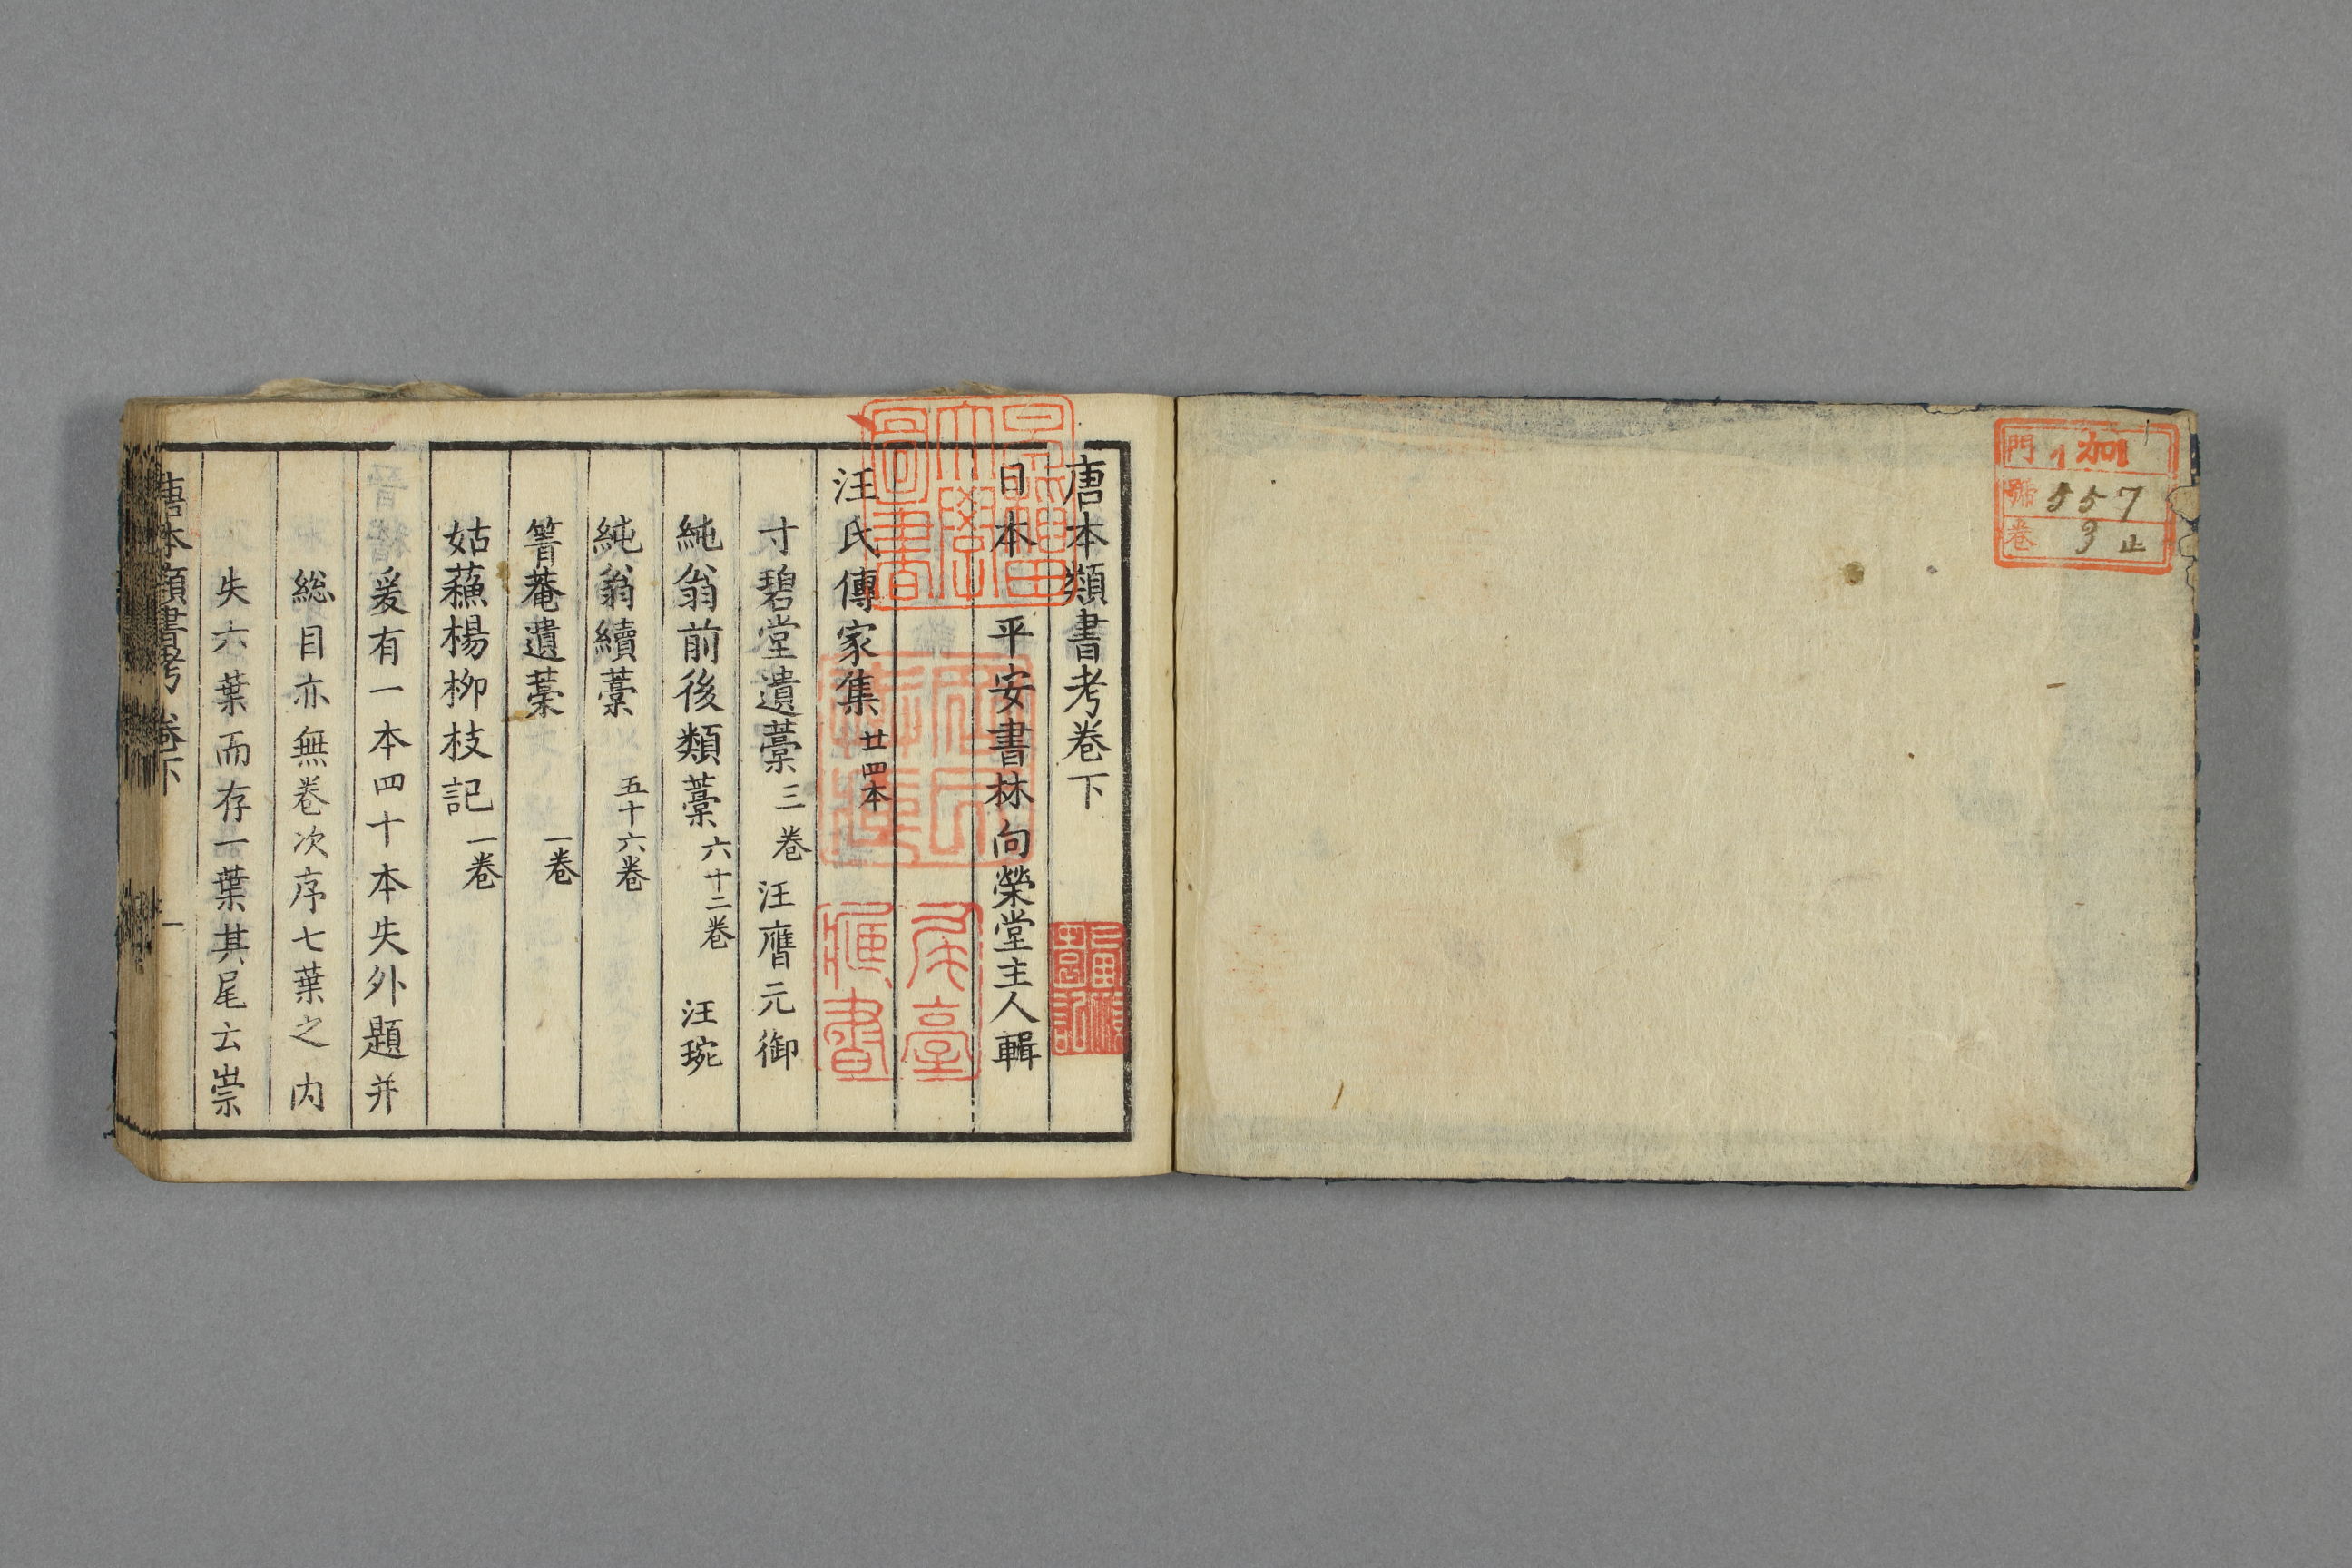 門 イ 加
號 557
巻 3 止
唐本類書考卷下
日本 平安書林向榮堂主人輯
汪氏傳家集 廿四本
寸碧堂遺藁 三卷 汪膺元御
純翁前後類藁 六十二卷 汪琬
純翁續藁 五十六卷
箐菴遺藁 一卷
姑蘓楊柳枝記 一卷
爰有一本四十本失外題并
総目亦無卷次序七葉之内
失六葉而存一葉其尾云崇
唐本類書考 卷下 一
早稲田
大學
圖書